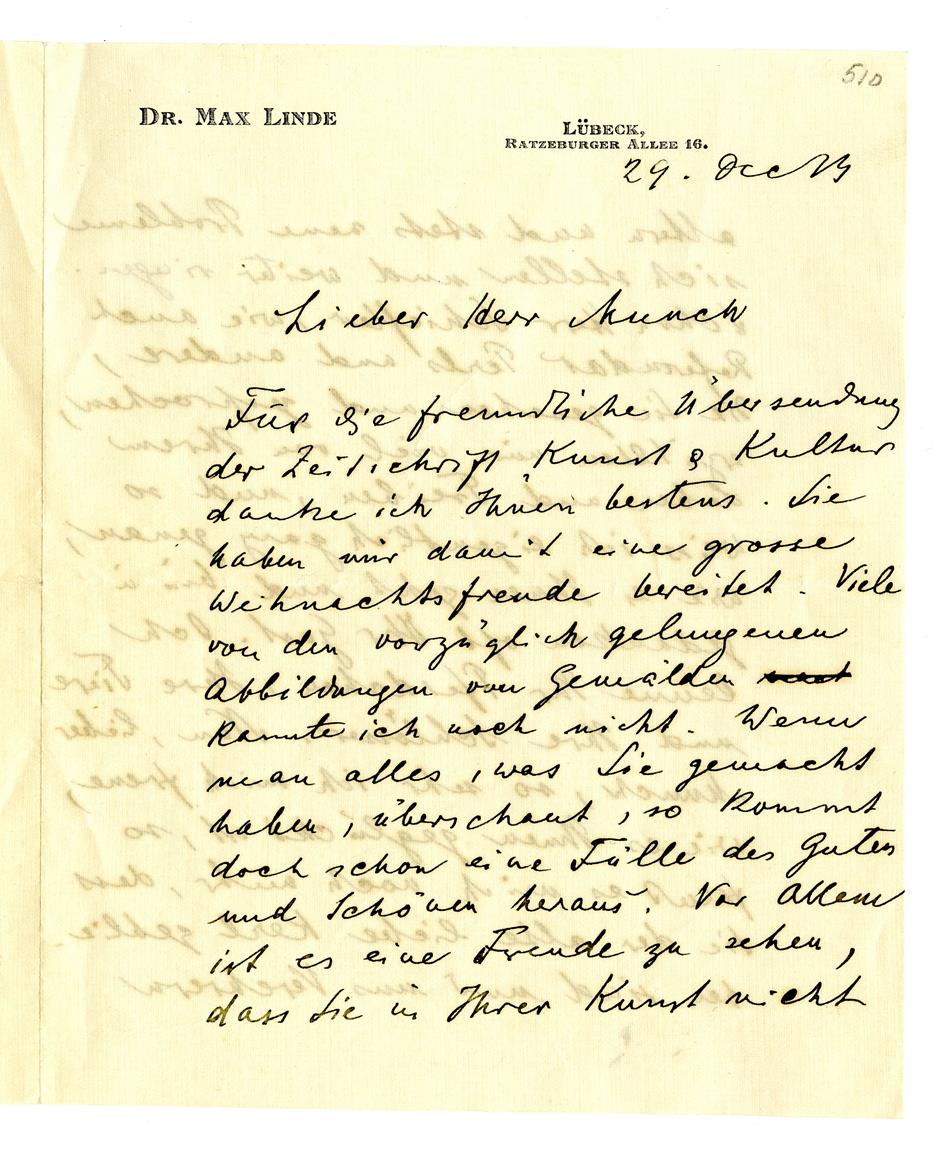 510
DR. MAX LINDE
LÜBECK,
RATZEBURGER ALLEE 16.
29. Dec 13
Lieber Herr Munch
Für die freundliche Übersendung
der Zeitschrift Kunst & Kultur
danke ich Ihnen bestens. Sie
haben mir damit eine grosse
Weihnachtsfreude bereitet. Viele
von den vorzüglich gelungenen
Abbildungen von Gemälden
kannte ich noch nicht. Wenn
man alles, was Sie gemacht
haben, überschaut, so kommt
doch schon eine Fülle des Guten
und Schönen heraus. Vor Allem
ist es eine Freude zu sehen,
dass Sie in Ihrer Kunst nicht